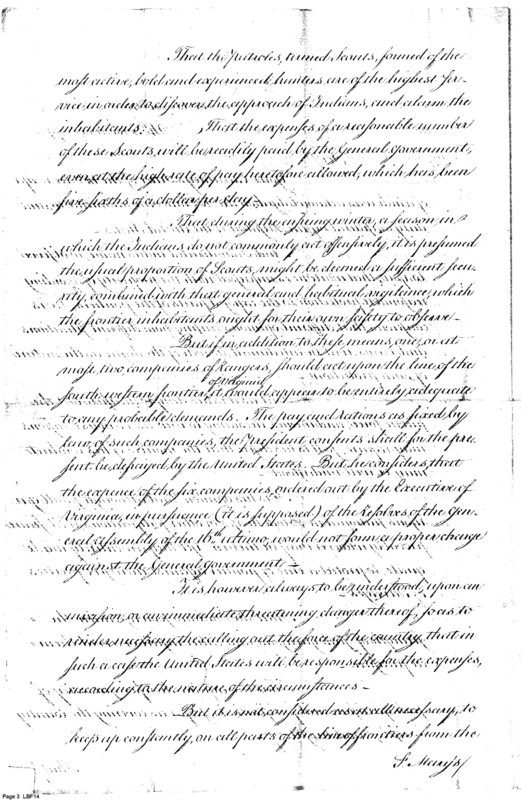 That the Patroles, termed Scouts, formed of the
most active, bold and experienced hunters are of the highest ser-
vice in order to discover the approach of Indians, and alarm the
inhabitants. That the expenses of a reasonable number
of these Scouts, will be readily paid by the General government,
even at the high rate of pay heretofore allowed, which has been
five sixths of a dollar per day.
That during the ensuing winter, a season in
which the Indians, do not commonly act offensively, it is presumed
the usual proportion of Scouts, might be deemed a sufficient secu-
rity, combined with that general and habitual vigilance, which
the frontier inhabitants ought for their own safety to observe—
But if in addition to these means, one, or at
most two, companies of Rangers, should act upon the line of the
of Virginia
south western frontier, it would appear to be entirely adequate
to any probable demands. The pay and rations as fixed, by
law, of such companies, the President consents shall for the pre-
sent be defrayed by the United States. But he considers, that
the expence of the six companies, ordered out by the Executive of
Virginia, in pursuance (it is supposed) of the Resolves, of the Gen-
eral Assembly of the 16th ultimo, would not form a proper charge
against the General Government—
It is however, always to be understood, upon an
invasion, or an immediate threatening danger thereof, so as to
render necessary the calling out the force of the country, that in
such a case the United States will be responsible for the expenses,
according to the nature of the circumstances—
But it is not considered as at all necessary, to
keep up constantly, on all parts of the line of frontiers from the
St. Mary's
Page 3 LBF14